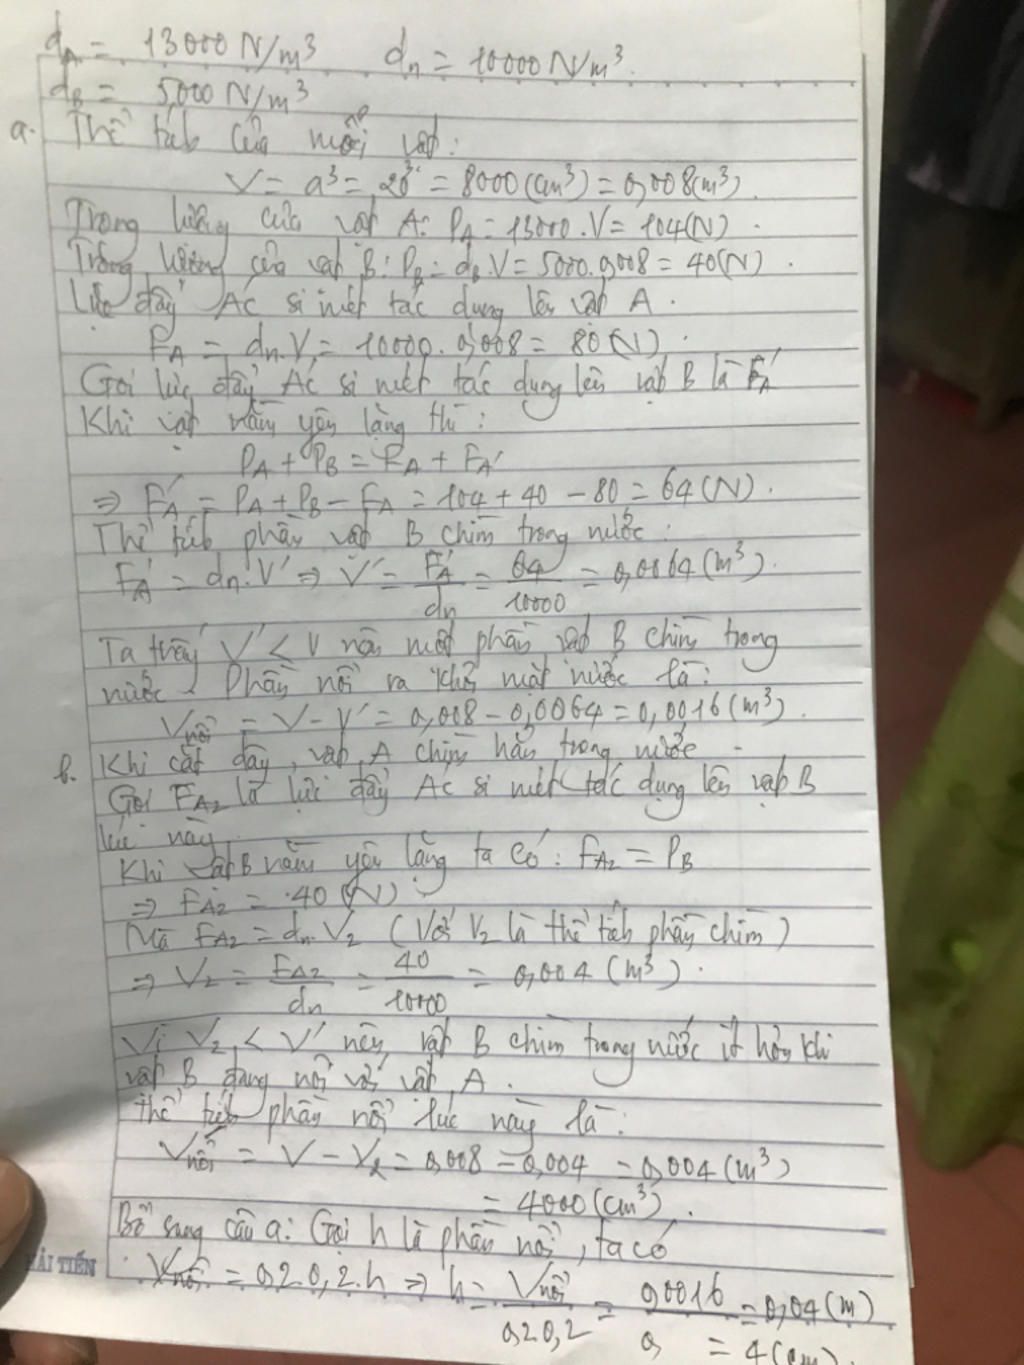 dA = 13000 N/m³ dn = 10000 N/m³.
dB = 5000 N/m³
a. Thể tích của mỗi vật:
V = a³ = 20³ = 8000 (cm³) = 0,008 (m³).
Trọng lượng của vật A: PA = 13000.V = 104 (N).
Trọng lượng của vật B: PB = dB.V = 5000.0,008 = 40 (N).
Lực đẩy Ác si mét tác dụng lên vật A.
FA = dn.V = 10000.0,008 = 80 (N).
Gọi lực đẩy Ác si mét tác dụng lên vật B là FA'
Khi vật nằm yên lặng thì:
PA + PB = FA + FA'
⇒ FA' = PA + PB - FA = 104 + 40 - 80 = 64 (N).
Thể tích phần vật B chìm trong nước:
FA' = dn.V' ⇒ V' = FA'/dn = 64/10000 = 0,0064 (m³).
Ta thấy V' < V nên một phần vật B chìm trong
nước. Phần nổi ra khỏi mặt nước là:
Vnổi = V - V' = 0,008 - 0,0064 = 0,0016 (m³).
b. Khi cắt dây, vật A chìm hẳn trong nước.
Gọi FA2 là lực đẩy Ác si mét tác dụng lên vật B
lúc này.
Khi vật B nằm yên lặng ta có: FA2 = PB
⇒ FA2 = 40 (N)
Mà FA2 = dn.V2 (Với V2 là thể tích phần chìm)
⇒ V2 = FA2/dn = 40/10000 = 0,004 (m³).
Vì V2 < V' nên vật B chìm trong nước ít hơn khi
vật B đang nối với vật A.
Thể tích phần nổi lúc này là:
Vnổi = V - V2 = 0,008 - 0,004 = 0,004 (m³)
= 4000 (cm³).
Bổ sung câu a: Gọi h là phần nổi, ta có
HẢI TIẾN
Vnổi = 0,2.0,2.h ⇒ h = Vnổi/0,2.0,2 = 0,0016/0, = 0,04 (m)
= 4 (cm).